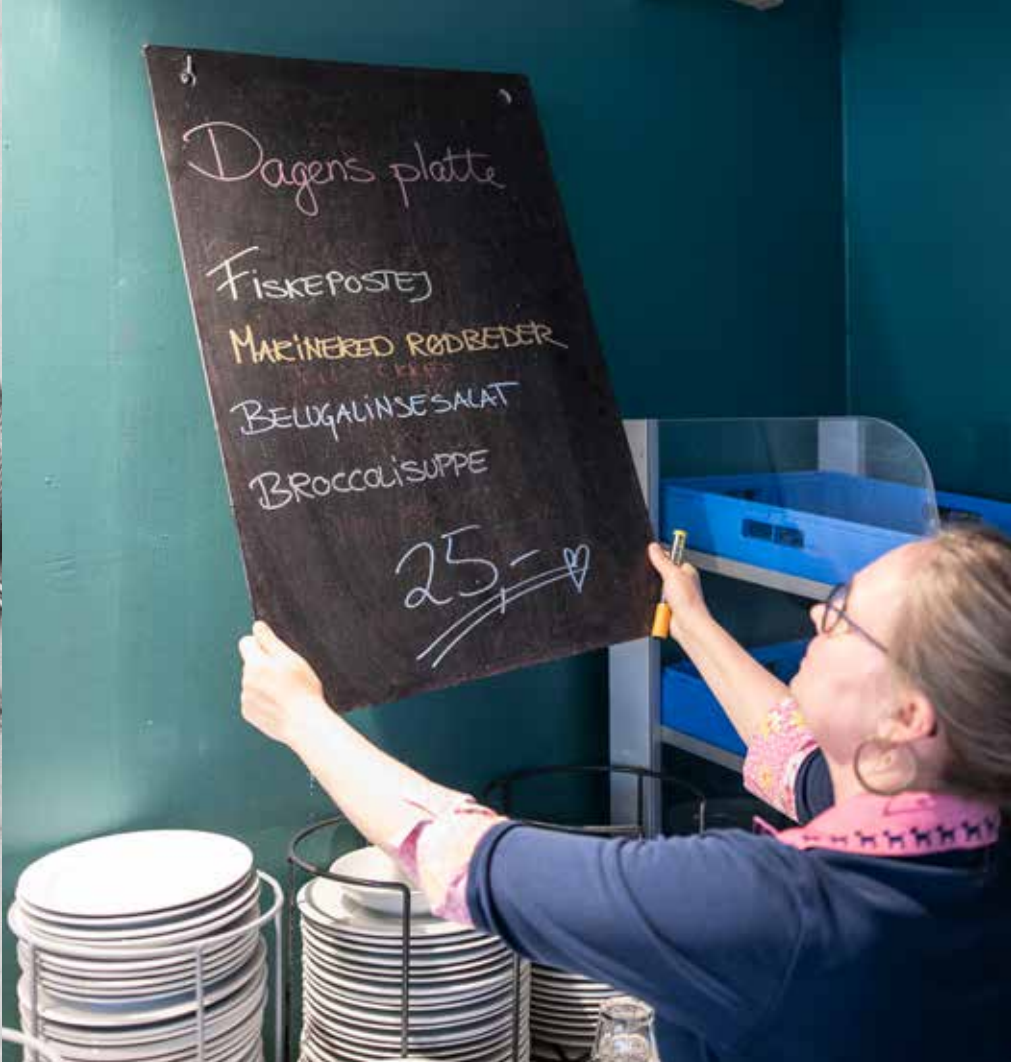 Dagens platte
FISKEPOSTEJ
MARINERED RØDBEDER
BELUGALINSESALAT
BROCCOLISUPPE
25,-